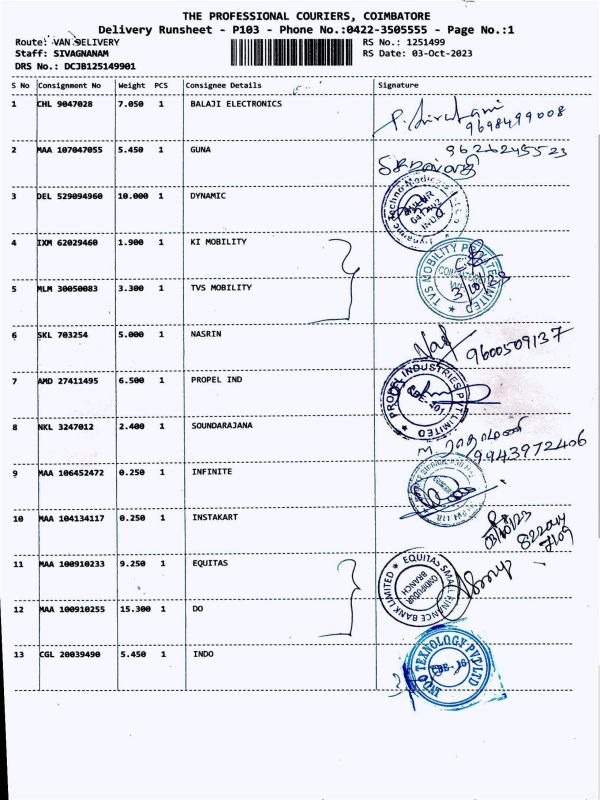 THE PROFESSIONAL COURIERS, COIMBATORE
Delivery Runsheet - P103 - Phone No.:0422-3505555 - Page No.:1
Route: VAN DELIVERY RS No.: 1251499
Staff: SIVAGNANAM RS Date: 03-Oct-2023
DRS No.: DCJB125149901
S No Consignment No Weight PCS Consignee Details Signature
1 CHL 9047028 7.050 1 BALAJI ELECTRONICS
9698499008
2 MAA 107047055 5.450 1 GUNA
9626245523
3 DEL 529094960 10.000 1 DYNAMIC
4 IXM 62029460 1.900 1 KI MOBILITY
TVS MOBILITY
5 MLM 30050083 3.300 1 TVS MOBILITY
6 SKL 703254 5.000 1 NASRIN
9600509137
7 AMD 27411495 6.500 1 PROPEL IND
PROPEL INDUSTRIES PVT LIMITED
8 NKL 3247012 2.400 1 SOUNDARAJANA
9943972406
9 MAA 106452472 0.250 1 INFINITE
10 MAA 104134117 0.250 1 INSTAKART
11 MAA 100910233 9.250 1 EQUITAS
EQUITAS SMALL FINANCE BANK LIMITED
BRANCH
12 MAA 100910255 15.300 1 DO
13 CGL 20039490 5.450 1 INDO
INDO TEXNOLOGY PVT LTD